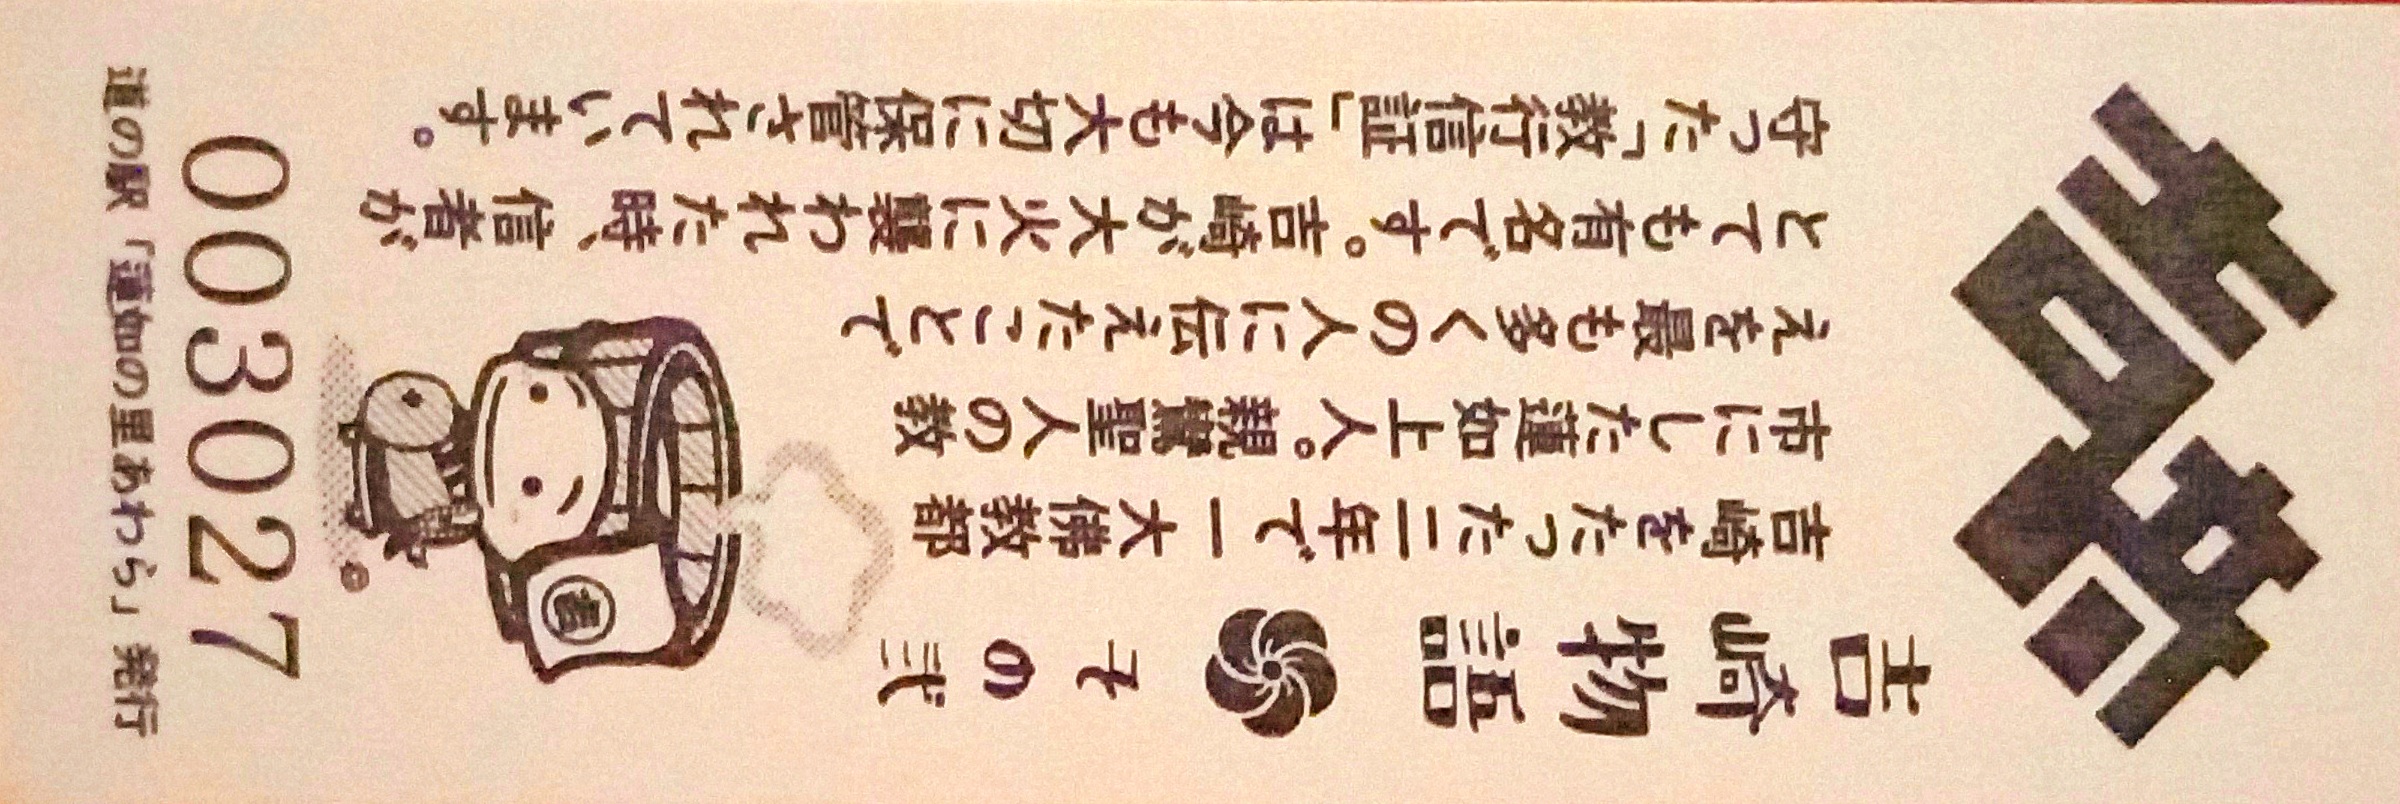 吉崎
吉崎物語 その弐
吉崎をたった二年で一大佛教都
市にした蓮如上人。親鸞聖人の教
えを最も多くの人に伝えたことで
とても有名です。吉崎が大火に襲われた時、信者が
守った「教行信証」は今も大切に保管されています。
003027
道の駅「蓮如の里あわら」発行